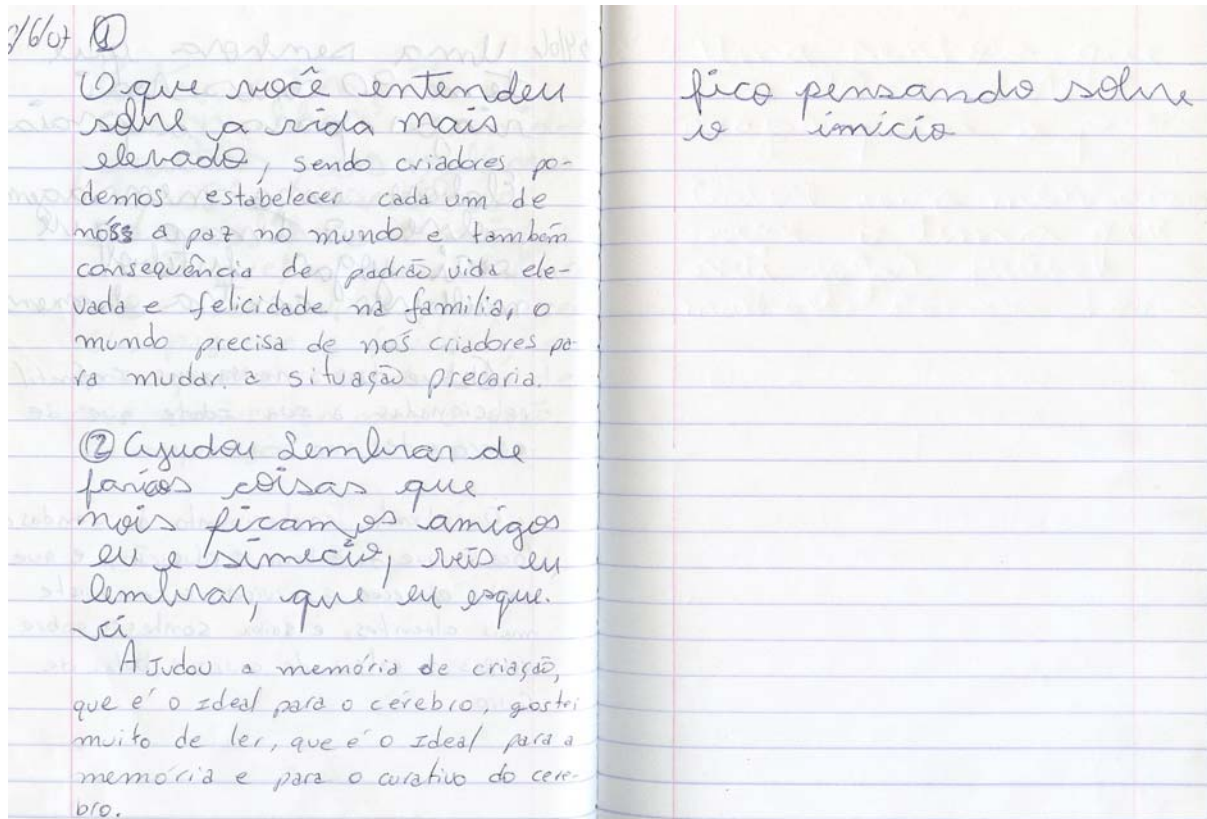 /6/07 ①
O que você entendeu
sobre a vida mais
elevado, sendo criadores po-
demos estabelecer cada um de
nós a paz no mundo e também
consequência de padrão vida ele-
vada e felicidade na familia, o
mundo precisa de nós criadores pa
ra mudar a situação precaria.
② Ajudou Lembrar de
farias coisas que
nois ficam os amigos
eu e simecio, veis eu
lembrar, que eu esque.
ci
AJudou a memória de criação,
que é o Ideal para o cérebro, gostei
muito de ler, que é o Ideal para a
memória e para o curativo do cere-
bro.
fico pensando sobre
o imício